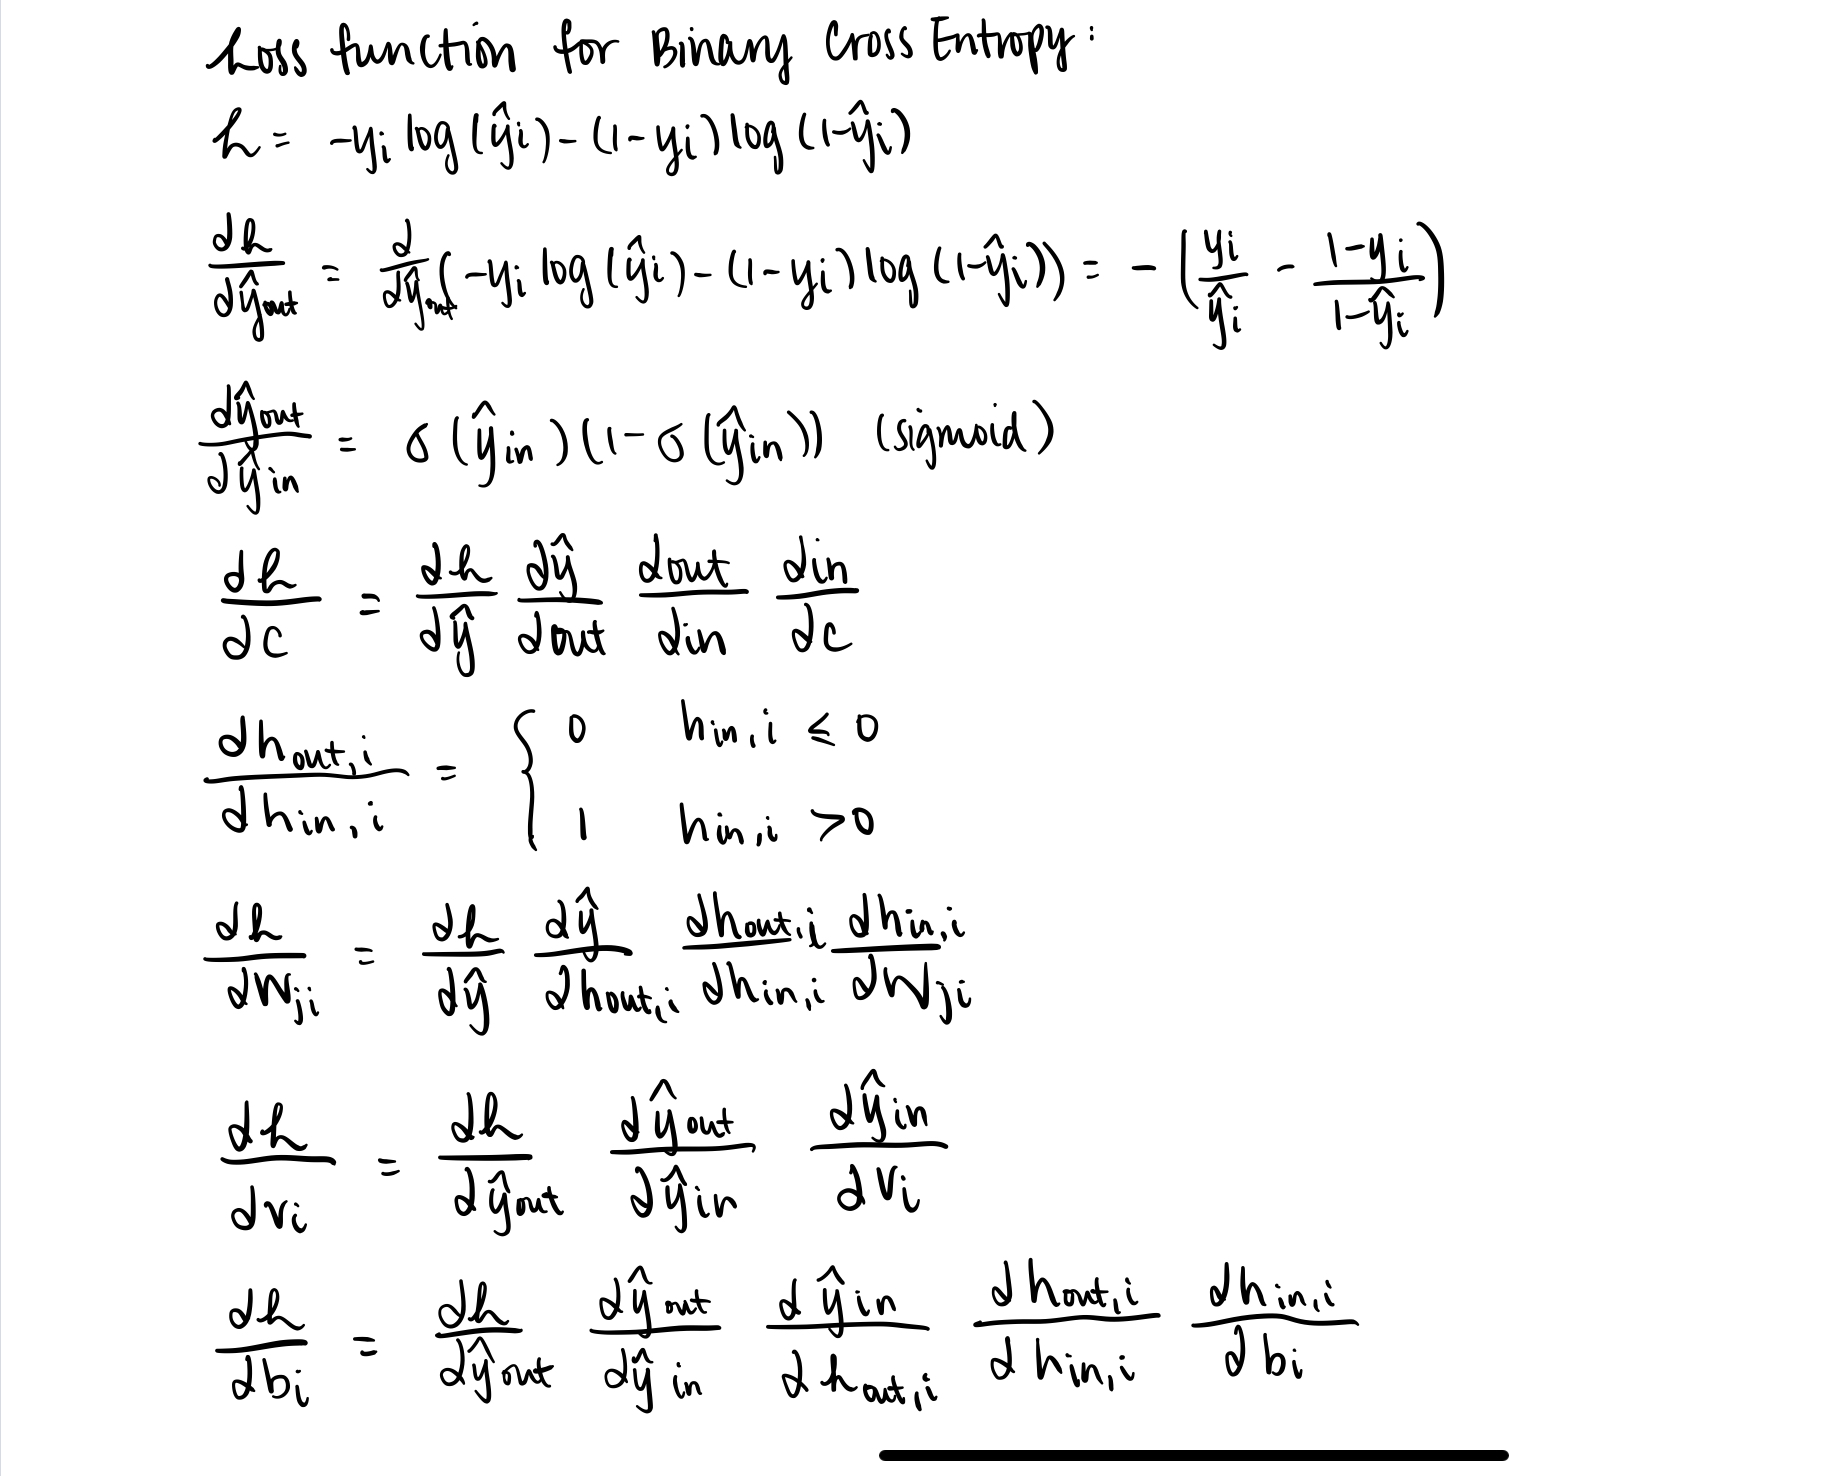 Loss function for Binary Cross Entropy:
L = -yᵢ log(ŷᵢ) - (1-yᵢ) log(1-ŷᵢ)
dL/dŷout = d/dŷout(-yᵢ log(ŷᵢ) - (1-yᵢ) log(1-ŷᵢ)) = -(yᵢ/ŷᵢ - (1-yᵢ)/(1-ŷᵢ))
dŷout/dŷin = σ(ŷin)(1-σ(ŷin)) (sigmoid)
dL/dc = dL/dŷ dŷ/dout dout/din din/dc
dhout,i/dhin,i = { 0 hin,i ≤ 0
1 hin,i > 0
dL/dWji = dL/dŷ dŷ/dhout,i dhout,i/dhin,i dhin,i/dWji
dL/dvi = dL/dŷout dŷout/dŷin dŷin/dvi
dL/dbi = dL/dŷout dŷout/dŷin dŷin/dhout,i dhout,i/dhin,i dhin,i/dbi